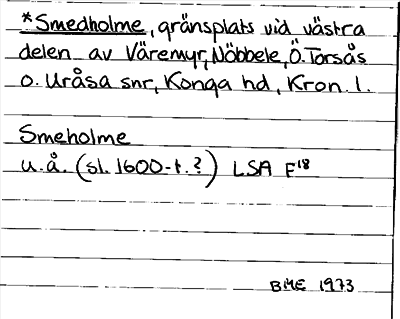 *Smedholme, gränsplats vid västra
delen av Väremyr, Nöbbele, Ö. Torsås
o. Uråsa snr, Konga hd, Kron. l.
Smeholme
u.å. (sl. 1600-t.?) LSA F18
BME 1973